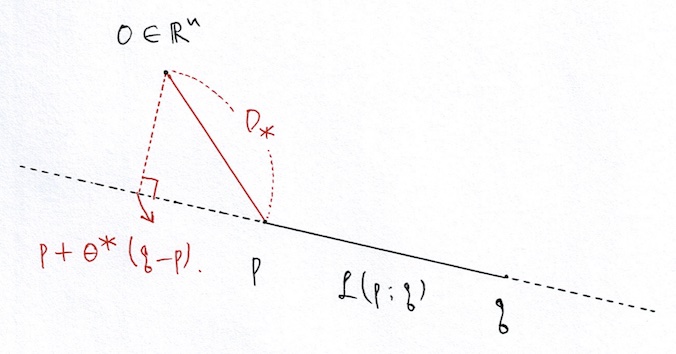 O ∈ ℝⁿ
D*
p + θ* (q-p).
p
L(p;q)
q